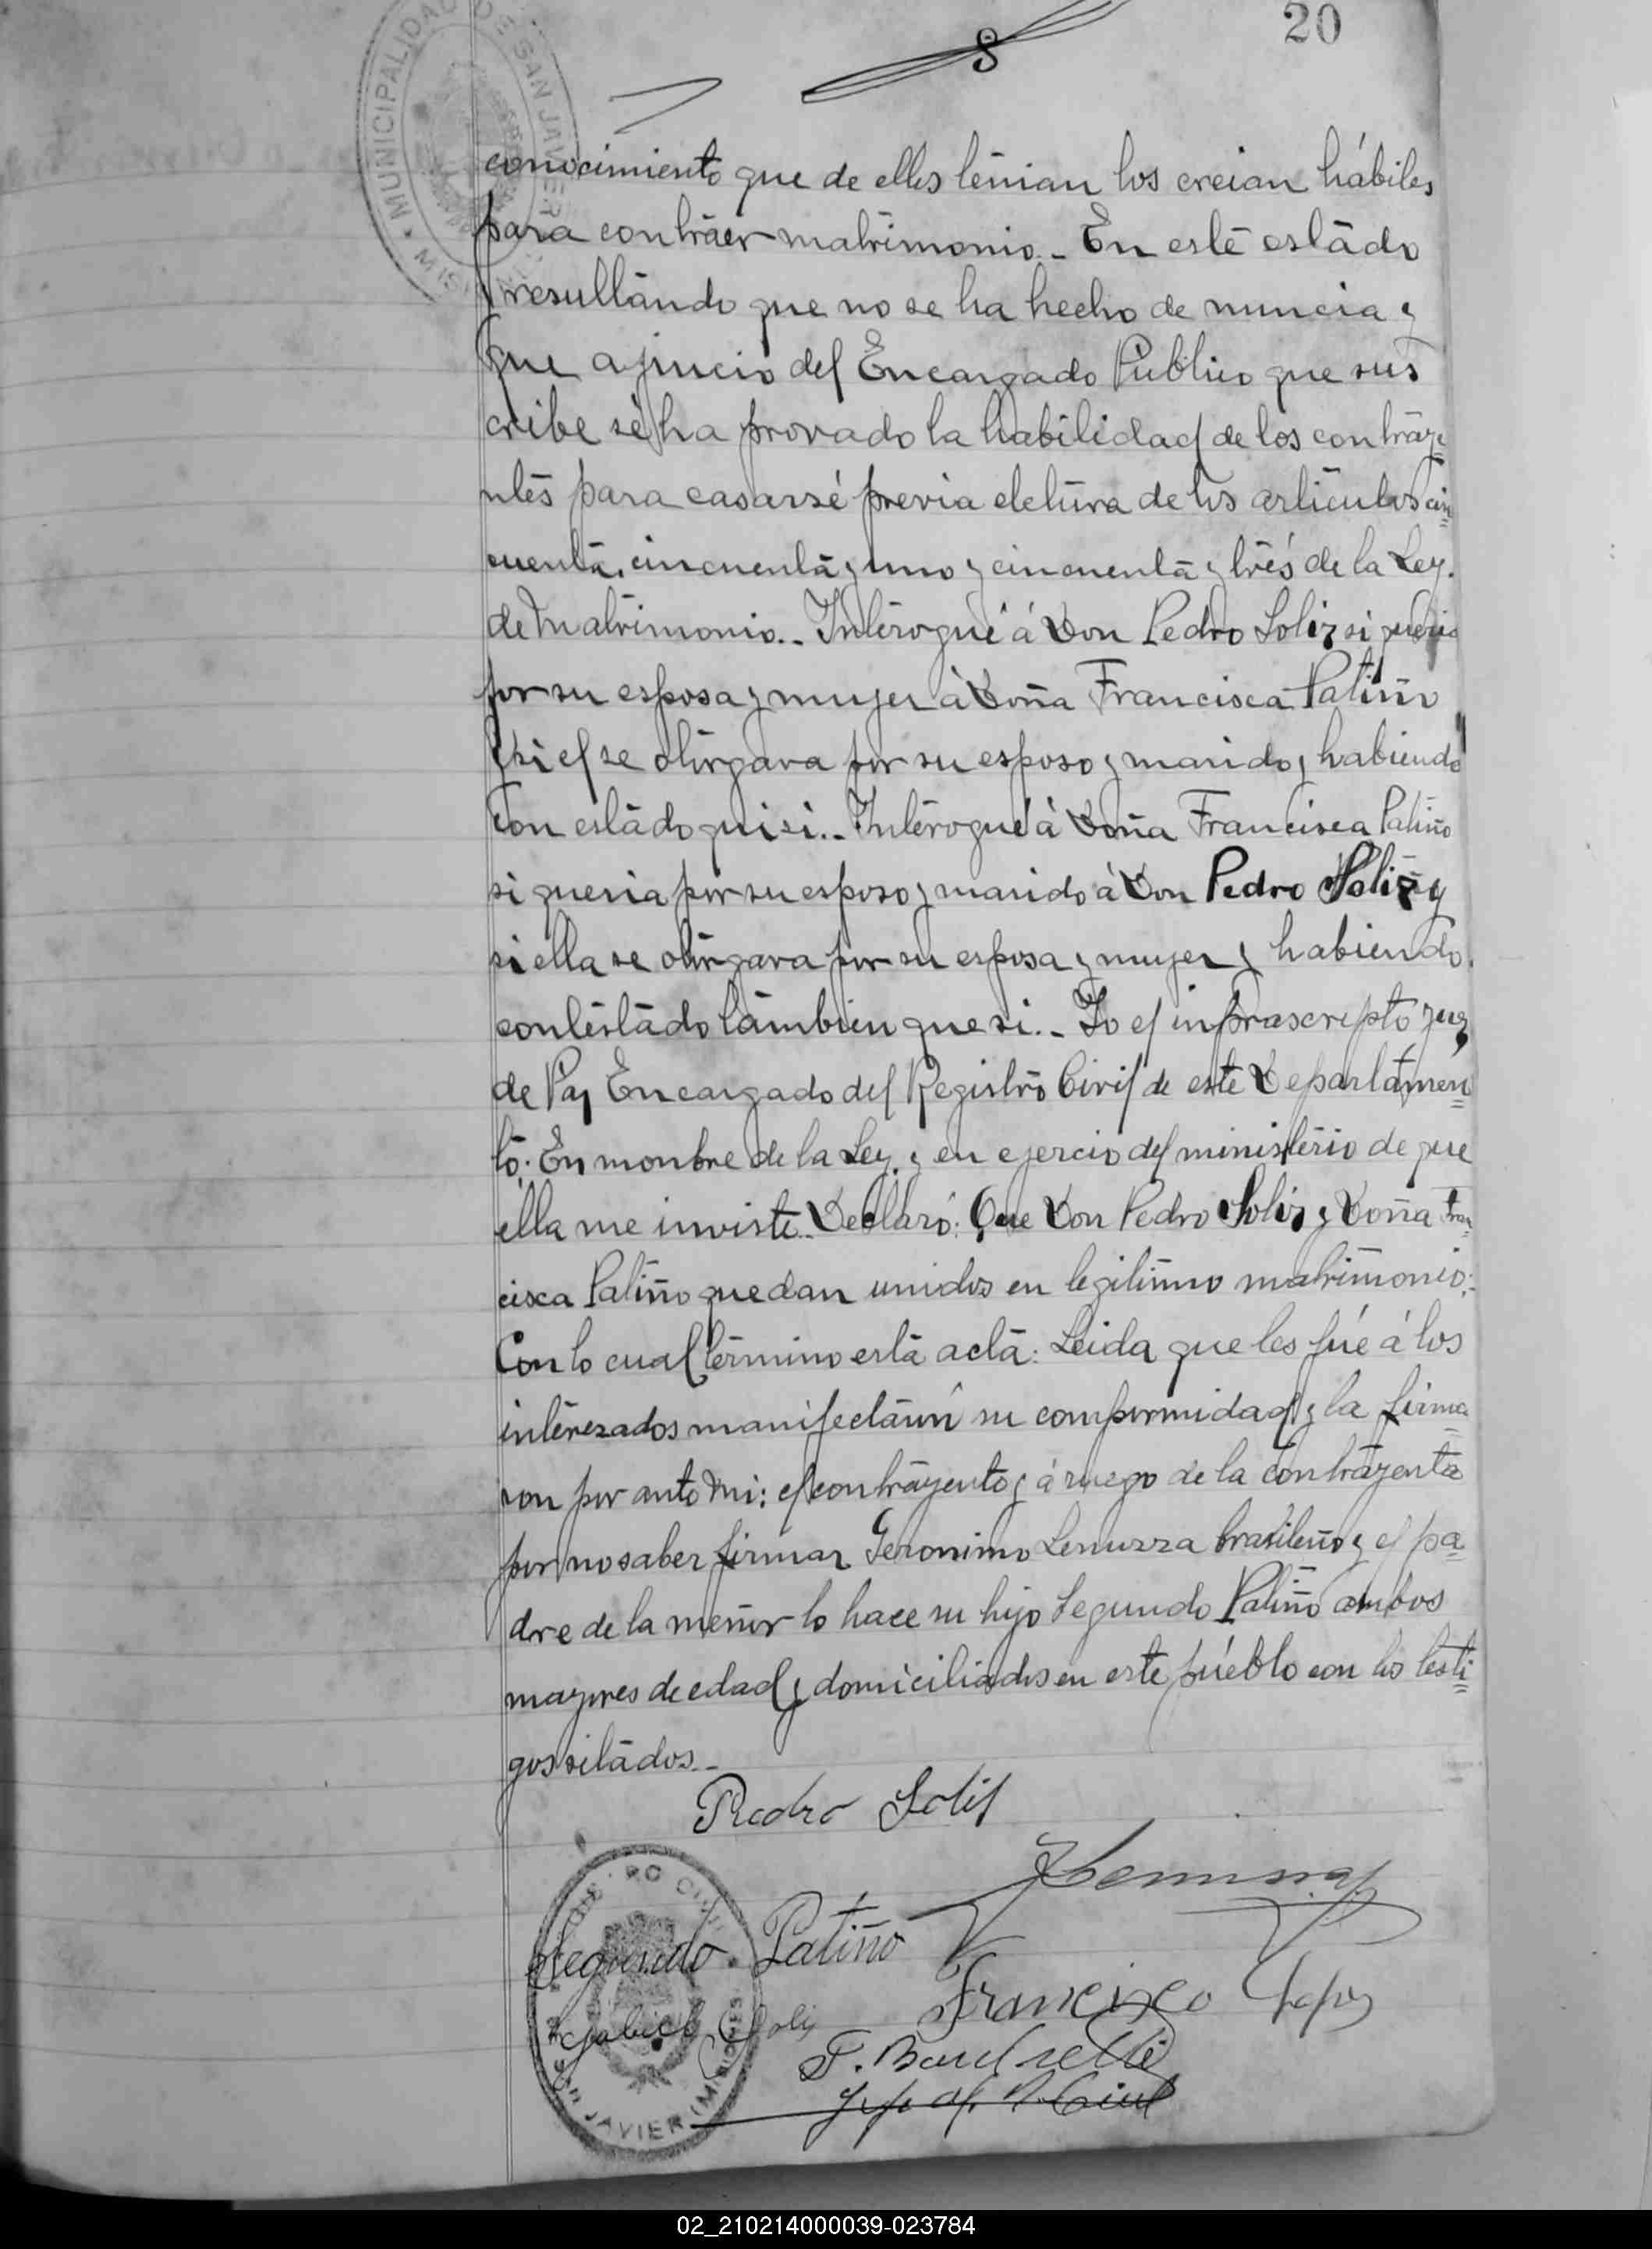 20
8
MUNICIPALIDAD DE SAN JAVIER
conocimiento que de ellos tenian los creian hábiles
para contraer matrimonio.- En este estado
resultando que no se ha hecho de nuncia y
que a jiucio del Encargado Público que sus
cribe se ha provado la habilidad de los contraye
ntes para casarsé previa eletura de los articulos cin
cuenta, cincuenta y uno y cincuenta y trés de la Ley.
de Matrimonio.- Interogué á Don Pedro Soliz si queria
por su esposa y mujer á Doña Francisca Patiño
y si el se otorgava por su esposo y marido y habiendo
con estado qui si.- Interogué á Doña Francisca Patiño
si queria por su esposo y marido á Don Pedro Soliz y
si ella se otorgava por su esposa y mujer y habiendo
contestado tambien que si.- Yo el infrascripto Juez
de Paz Encargado del Registro Civil de este Departamen
to. En monbre de la Ley y en ejercio del ministerio de que
ella me inviste. Declaró: Que Don Pedro Soliz y Doña Fran
cisca Patiño quedan unidos en legitimo matrimonio:
Con lo cual termino esta acta: Leida que les fué á los
interezados manifectáun su comformidad y la firma
ron por anto Mi: el contrayento y á ruego de la contrayenta
por no saber firmar Geronimo Lemuzza brasileño y el pa
dre de la menor lo hace su hijo Segundo Patiño ambos
mayores de edad y domiciliados en este púeblo con los testi
gos sitados.-
Pedro Solis
Segundo Patiño
Francisco Lopez
Gabiel Soliz
Jefe of. R. Civil
SAN JAVIER (MISIONES)
02_210214000039-023784